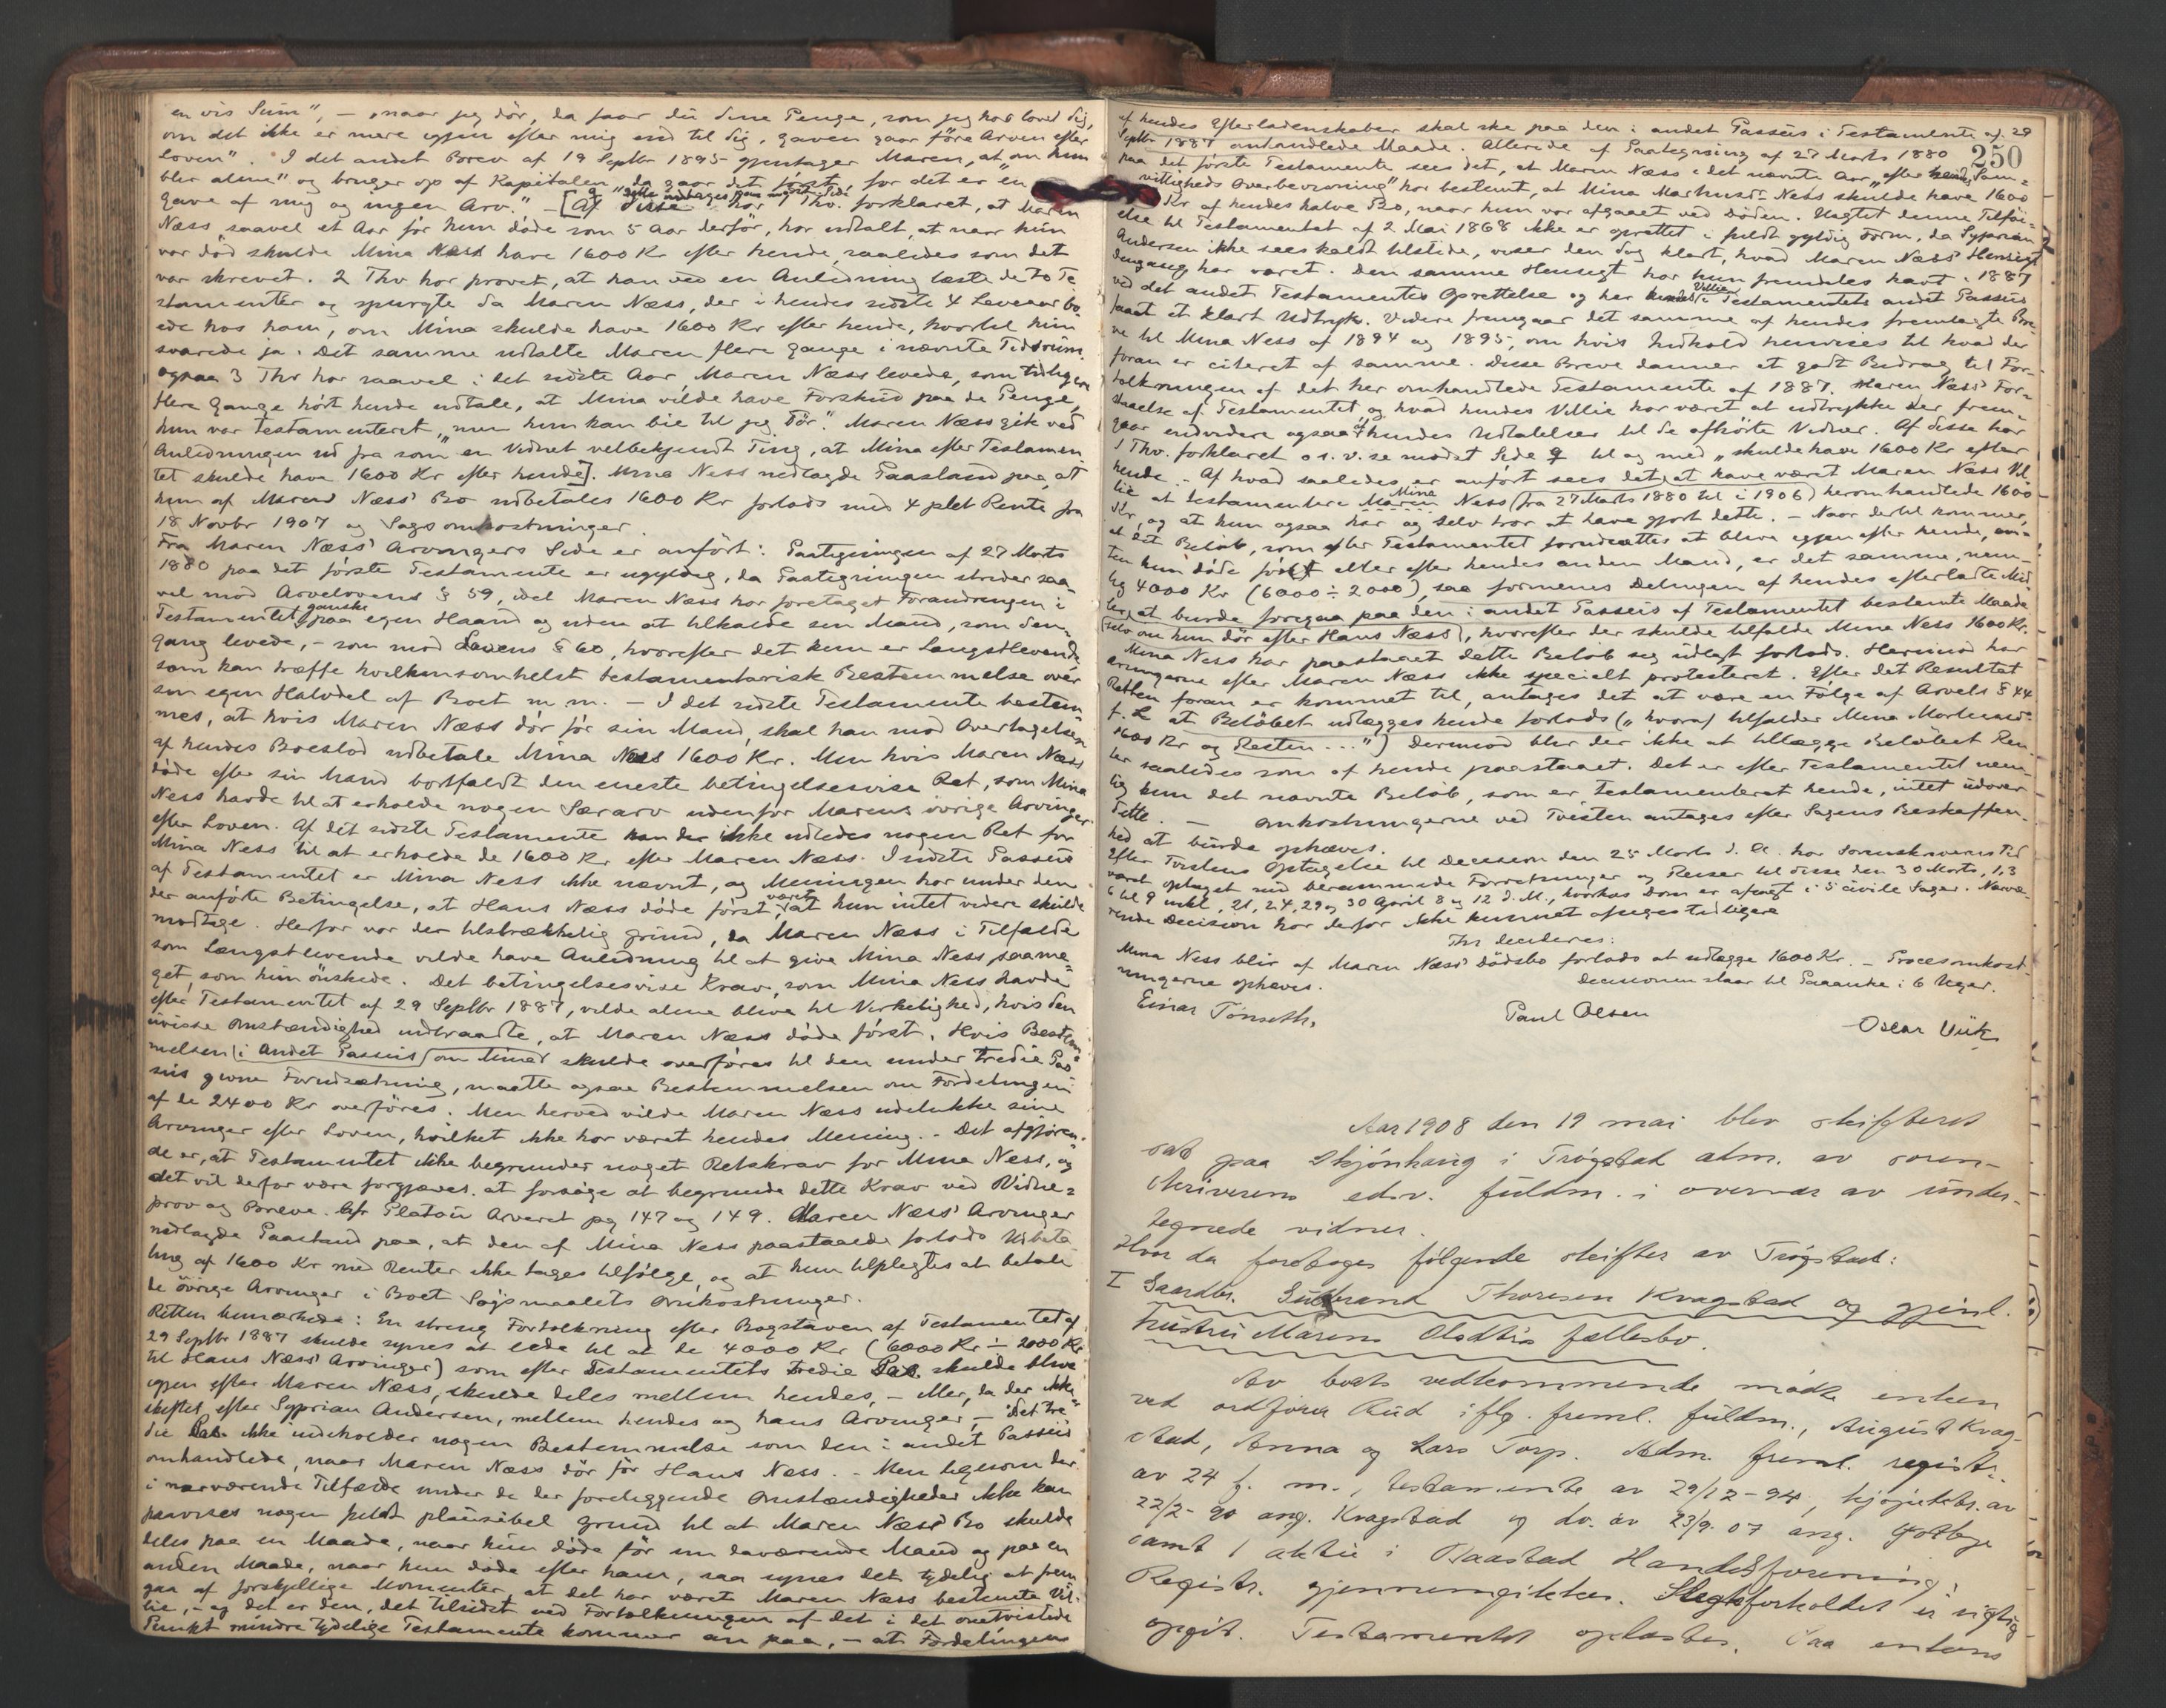 en vis Sum", — „naar jeg dör, da faar du dine Penge, som jeg har lovet dig,
om det ikke er mere igjen efter mig end til dig, gaven gaar före Arven efter
Loven". I det andet Brev af 19 Septbr 1895 gjentager Maren, at „om hun
blir alene" og bruger op af Kapitalen, da gaar det först, for det er „en
Gave af mig og ingen Arv." — [Af disse har 1 Thv. forklaret, at Maren
Næss, saavel et Aar för hun döde som 5 Aar derför, har udtalt, at naar hun
var död skulde Mina Næss have 1600 Kr efter hende, saaledes som det
var skrevet. 2 Thv. har provet, at han ved en Anledning læste de to Te
stamenter og spurgte da Maren Næss, der i hendes sidste 4 Leveaar bo
ede hos ham, om Mina skulde have 1600 Kr efter hende, hvortil hun
svarede ja. Det samme udtalte Maren flere Gange i nævnte Tidsrum.
Ogsaa 3 Thv har saavel i det sidste Aar Maren Næss levede, som tidligere
flere Gange hört hende udtale, at Mina vilde have Forskud paa de Penge,
hun var testamenteret, „men hun kan bie til jeg dör". Maren Næss gik ved
Anledningen ud fra som en Vidnet velbekjendt Ting, at Mina efter Testamen
tet skulde have 1600 Kr efter hende]. Mina Ness nedlagde Paastand paa, at
hun af Maren Næss' Bo udbetales 1600 Kr forlods med 4 pCt Rente fra
18 Novbr 1907 og Sagsomkostninger.
Fra Maren Næss' Arvingers Side er anført: Paategningen af 27 Marts
1880 paa det förste Testamente er ugyldig, da Paategningen strider saa
vel mod Arvelovens § 59, idet Maren Næss har foretaget Forandringen i
Testamentet ganske paa egen Haand og uden at tilkalde sin Mand, som den
gang levede, – som mod Lovens § 60, hvorefter det kun er Længstlevende
som kan træffe hvilkensomhelst testamentarisk Bestemmelse over
sin egen Halvdel af Boet m. m. — I det sidste Testamente bestem
mes, at hvis Maren Næss dör för sin Mand, skal han mod Overtagelsen
af hendes Boeslod udbetale Mina Ness 1600 Kr. Men hvis Maren Næss
döde efter sin Mand bortfaldt den eneste betingelsesvise Ret, som Mina
Ness havde til at erholde nogen Særarv udenfor Marens övrige Arvinger
efter Loven. Af det sidste Testamente kan der ikke udledes nogen Ret for
Mina Ness til at erholde de 1600 Kr efter Maren Næss. I sidste Passus
af Testamentet er Mina Ness ikke nævnt, og Meningen har under den
der anförte Betingelse, at Hans Næss döde först, været at hun intet videre skulde
modtage. Herfor var der tilstrækkelig Grund, da Maren Næss i Tilfælde
som Længstlevende vilde have Anledning til at give Mina Ness saame
get, som hun önskede. Det betingelsesvise Krav, som Mina Ness havde
efter Testamentet af 29 Septbr 1887, vilde alene blive til Virkelighed, hvis den
uvisse Omstændighed indtraadte, at Maren Næss döde först. Hvis Bestem
melsen (i andet Passus) om Mina skulde overföres til den under tredie Pas
sus givne Forudsætning, maatte ogsaa Bestemmelsen om Fordelingen
af de 2400 Kr overföres. Men herved vilde Maren Næss udelukke sine
Arvinger efter Loven, hvilket ikke har været hendes Mening. – Det afgjören
de er, at Testamentet ikke begrunder noget Retskrav for Mina Ness, og
det vil derfor være forgjæves at forsöge at begrunde dette Krav ved Vidne
prov og Breve. Cfr Platou Arveret pg 147 og 149. Maren Næss' Arvinger
nedlagde Paastand paa, at den af Mina Ness paastaaede forlods Udbeta
ling af 1600 Kr med Renter ikke tages tilfölge, og at hun tilpligtes at betale
de övrige Arvinger i Boet Sögsmaalets Omkostninger.
Retten bemærkede: En streng Fortolkning efter Bogstaven af Testamentet af
29 Septbr 1887 skulde synes at lede til at de 4000 Kr (6000 Kr ÷ 2000 Kr
til Hans Næss' Arvinger) som efter Testamentets tredie Pas. skulde blive
igjen efter Maren Næss, skulde deles mellem hendes, – eller, da der ikke
skiftet efter Syprian Andersen, mellem hendes og hans Arvinger, – det tre
die Pas. ikke indeholder nogen Bestemmelse som den i andet Passus
omhandlede, naar Maren Næss dör för Hans Næss. – Men ligesom der
i nærværende Tilfælde under de der foreliggende Omstændigheder ikke kan
paavises nogen fuldt plausibel Grund til at Maren Næss' Bo skulde
deles paa en Maade, naar hun döde för sin daværende Mand og paa en
anden Maade, naar hun döde efter ham, saa synes det tydelig at frem
gaa af forskjellige Momenter, at det har været Maren Næss bestemte Vil-
lie, – og det er den, det tilsidst ved Fortolkningen af det i det omtvistede
Punkt mindre tydelige Testamente kommer an paa, – at Fordelingen
250
af hendes Efterladenskaber skal ske paa den i andet Passus i Testamente af 29
Septbr 1887 omhandlede Maade. Allerede af Paategning af 27 Marts 1880
paa det förste Testamente sees det, at Maren Næss i det nævnte Aar „efter hendes Sam-
vittigheds Overbevisning" har bestemt, at Mina Ness skulde have 1600
Kr af hendes halve Bo, naar hun var afgaaet ved Döden. Uagtet denne Tilföi-
else til Testamentet af 2 Mai 1868 ikke er oprettet i fuldt gyldig Form, da Syprian
Andersen ikke sees kaldt tilstede, viser den dog klart, hvad Maren Næss' Hensigt
dengang har været. Den samme Hensigt har hun fremdeles havt i 1887
ved det andet Testamentes Oprettelse og her Villien i Testamentets andet Passus
faaet et klart Udtryk. Videre fremgaar det samme af hendes fremlagte Bre
ve til Mina Ness af 1894 og 1895, om hvis Indhold henvises til hvad der
foran er citeret af samme. Disse Breve danner et godt Bidrag til For-
tolkningen af det her omhandlede Testamente af 1887. Maren Næss' For-
staaelse af Testamentet, og hvad hendes Villie har været at udtrykke der, frem
gaar endvidere ogsaa af hendes Udtalelser til de afhörte Vidner. Af disse har
1 Thv. forklaret o s. v. se modst Side til og med „skulde have 1600 Kr efter
hende. – Af hvad saaledes er anfört sees det at have været Maren Næss Vil
lie at testamentere Mina Ness (fra 27 Marts 1880 til i 1906) heromhandlede 1600
Kr, og at hun ogsaa har og selv tror at have gjort dette. – Naar dertil kommer,
at det Belöb, som efter Testamentet forudsættes at blive igjen efter hende, en-
ten hun döde först eller efter hendes anden Mand, er det samme, nem-
lig 4000 Kr (6000 ÷ 2000), saa formenes Delingen af hendes efterladte Mid
ler at burde foregaa paa den i andet Passus af Testamentet bestemte Maade
(selv om hun dör efter Hans Næss), hvorefter der skulde tilfalde Mina Ness 1600 Kr.
Mina Ness har paastaaet dette Belöb sig udlagt forlods. Herimod har
Arvingerne efter Maren Næss ikke specielt protesteret. Efter det Resultat
Retten foran er kommet til, antages det at være en Fölge af Arvels § 44
at Belöbet udlægges hende forlods („hvoraf tilfalder Mina
1600 Kr og Resten ...") Derimod blir der ikke at tillægge Belöbet Ren
ter saaledes som af hende paastaaet. Det er efter Testamentet nem-
lig kun det nævnte Belöb, som er testamenteret hende, intet udover
dette. — Omkostningerne ved Tvisten antages efter Sagens Beskaffen-
hed at burde ophæves.
Efter Tvistens Optagelse til Decision den 25 Marts d. A. har Sorenskriveren Tid
været optaget med berammede Forretninger og Reiser til disse den 30 Marts, 1, 3
6 til 9 inkl., 21, 24, 29 og 30 April 8 og 12 d. M., hvorhos Dom er afsagt i 5 civile Sager. Nærvæ-
rende Decision har derfor ikke kunnet afsiges tidligere
Thi decideres:
Mina Ness blir af Maren Næss' Dödsbo forlods at udlægge 1600 Kr. – Procesomkost-
ningerne ophæves. Decisionen staar til Paaanke i 6 Uger.
Einar Tönseth, Paul Olsen Oscar
Aar 1908 den 19 mai blev skifteret
sat paa Skjönhaug i Trögstad adm. av soren-
skriverens eds.v. fuldm. i overvær av under-
tegnede vidner.
Hvor da foretoges fölgende skifter av Trögstad:
I Gaardbr. Gulbrand Thoresen Kragstad og gjenl.
hustru Maren Olsdtrs fællesbo.
Av boets vedkommende mödte enken
ved ordförer Rud iflg. freml. fuldm., August Krag-
stad, Anna og Lars Torp. Adm. freml. registr.
av 24 f. m., testamente av 29/12-94, skjötebr. av
22/2-90 ang. Kragstad og do. av 23/9.07 ang.
samt 1 aktie i Baastad Handelsforening.
Registr. gjennemgikkes. Slegtsforholdet er rigtig
opgit. Testamentet oplæstes. Paa enkens